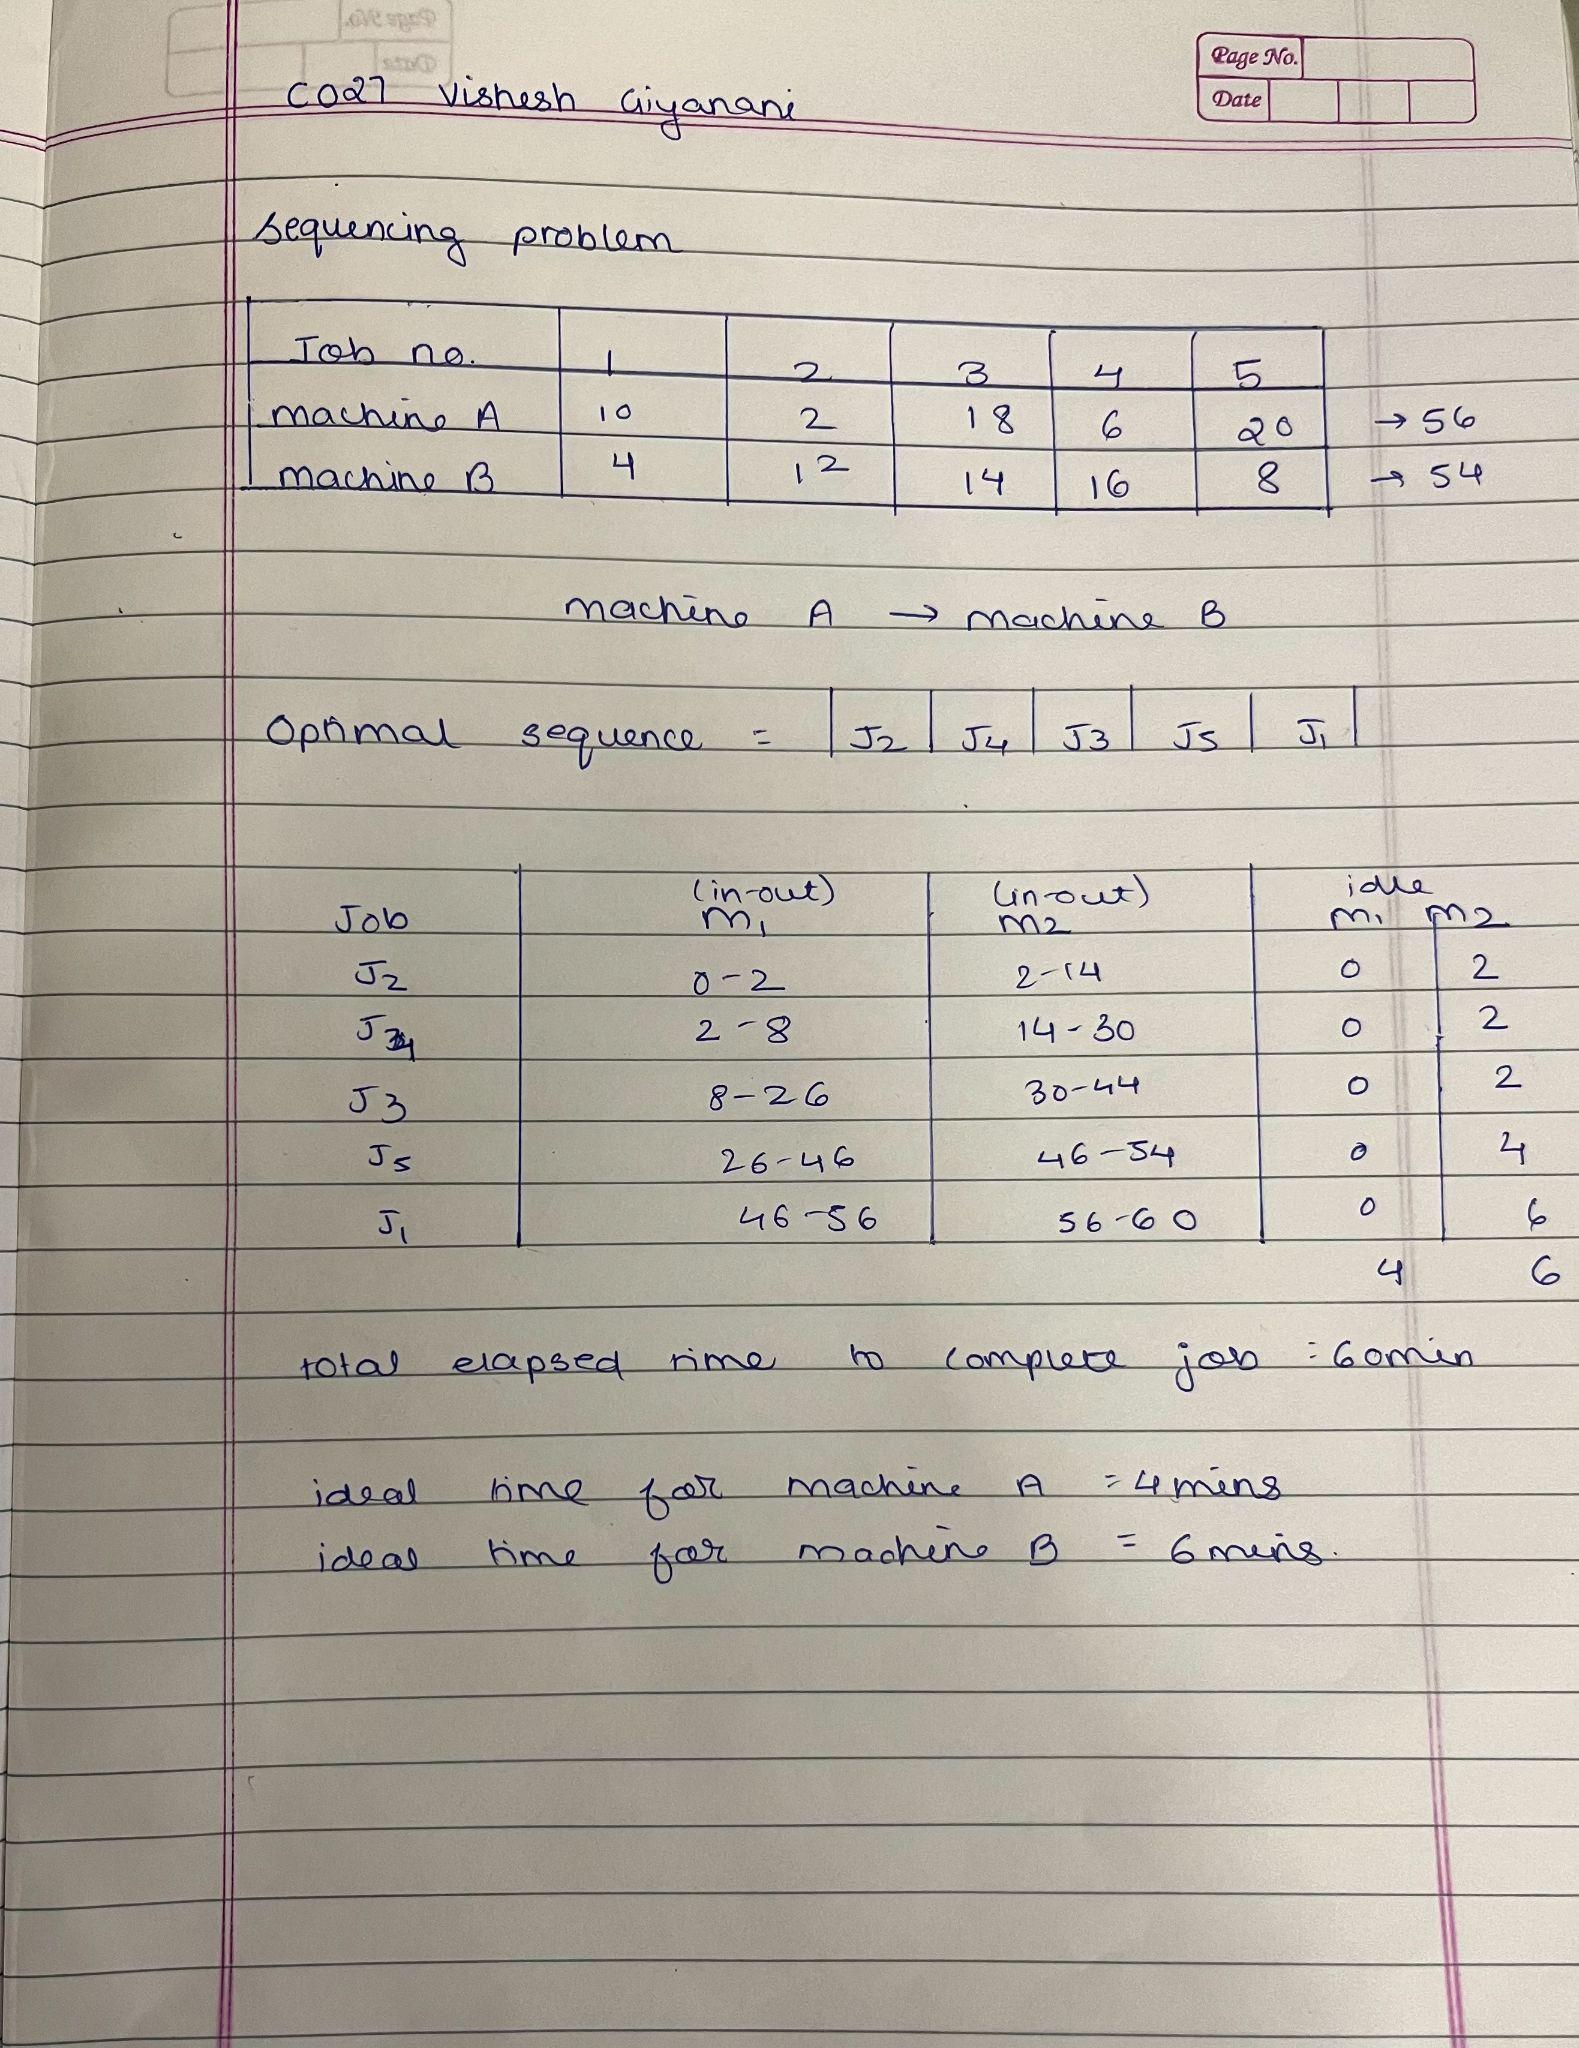 Page No.
Date
CO27 Vishesh Giyanani
Sequencing problem
Job no. 1 2 3 4 5
machine A 10 2 18 6 20 → 56
machine B 4 12 14 16 8 → 54
machine A → machine B
Optimal sequence = | J2 | J4 | J3 | J5 | J1 |
(in-out) (in-out) idle
Job M1 M2 M1 M2
J2 0-2 2-14 0 2
J4 2-8 14-30 0 2
J3 8-26 30-44 0 2
J5 26-46 46-54 0 4
J1 46-56 56-60 0 6
4 6
total elapsed time to complete job = 60min
ideal time for machine A = 4 mins
ideal time for machine B = 6 mins.